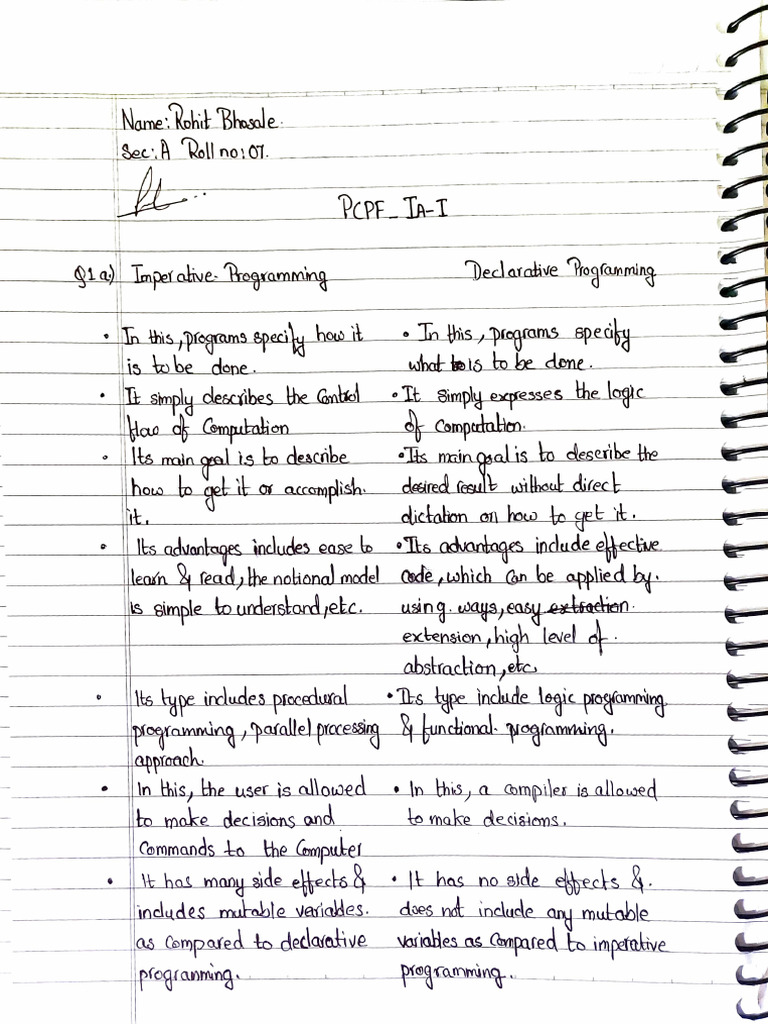 Name: Rohit Bhosale.
Sec: A Roll no: 07.
PCPF_IA-I
Q1 a.) Imperative Programming
Declarative Programming
• In this, programs specify how it
is to be done.
• In this, programs specify
what is to be done.
• It simply describes the control
flow of Computation
• It simply expresses the logic
of computation.
• Its main goal is to describe
how to get it or accomplish.
it.
• Its main goal is to describe the
desired result without direct
dictation on how to get it.
• Its advantages includes ease to
learn & read, the notional model
is simple to understand, etc.
• Its advantages include effective
code, which can be applied by.
using. ways, easy extraction.
extension, high level of.
abstraction, etc
• Its type includes procedural
programming, parallel processing
approach.
• Its type include logic programming
& functional programming.
• In this, the user is allowed
to make decisions and
Commands to the Computer
• In this, a compiler is allowed
to make decisions.
• It has many side effects &
includes mutable variables.
as compared to declarative
programming.
• It has no side effects &.
does not include any mutable
variables as compared to imperative
programming.